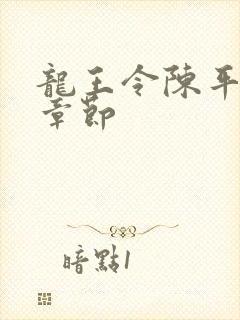 龍王令陳平
章節
暗點1